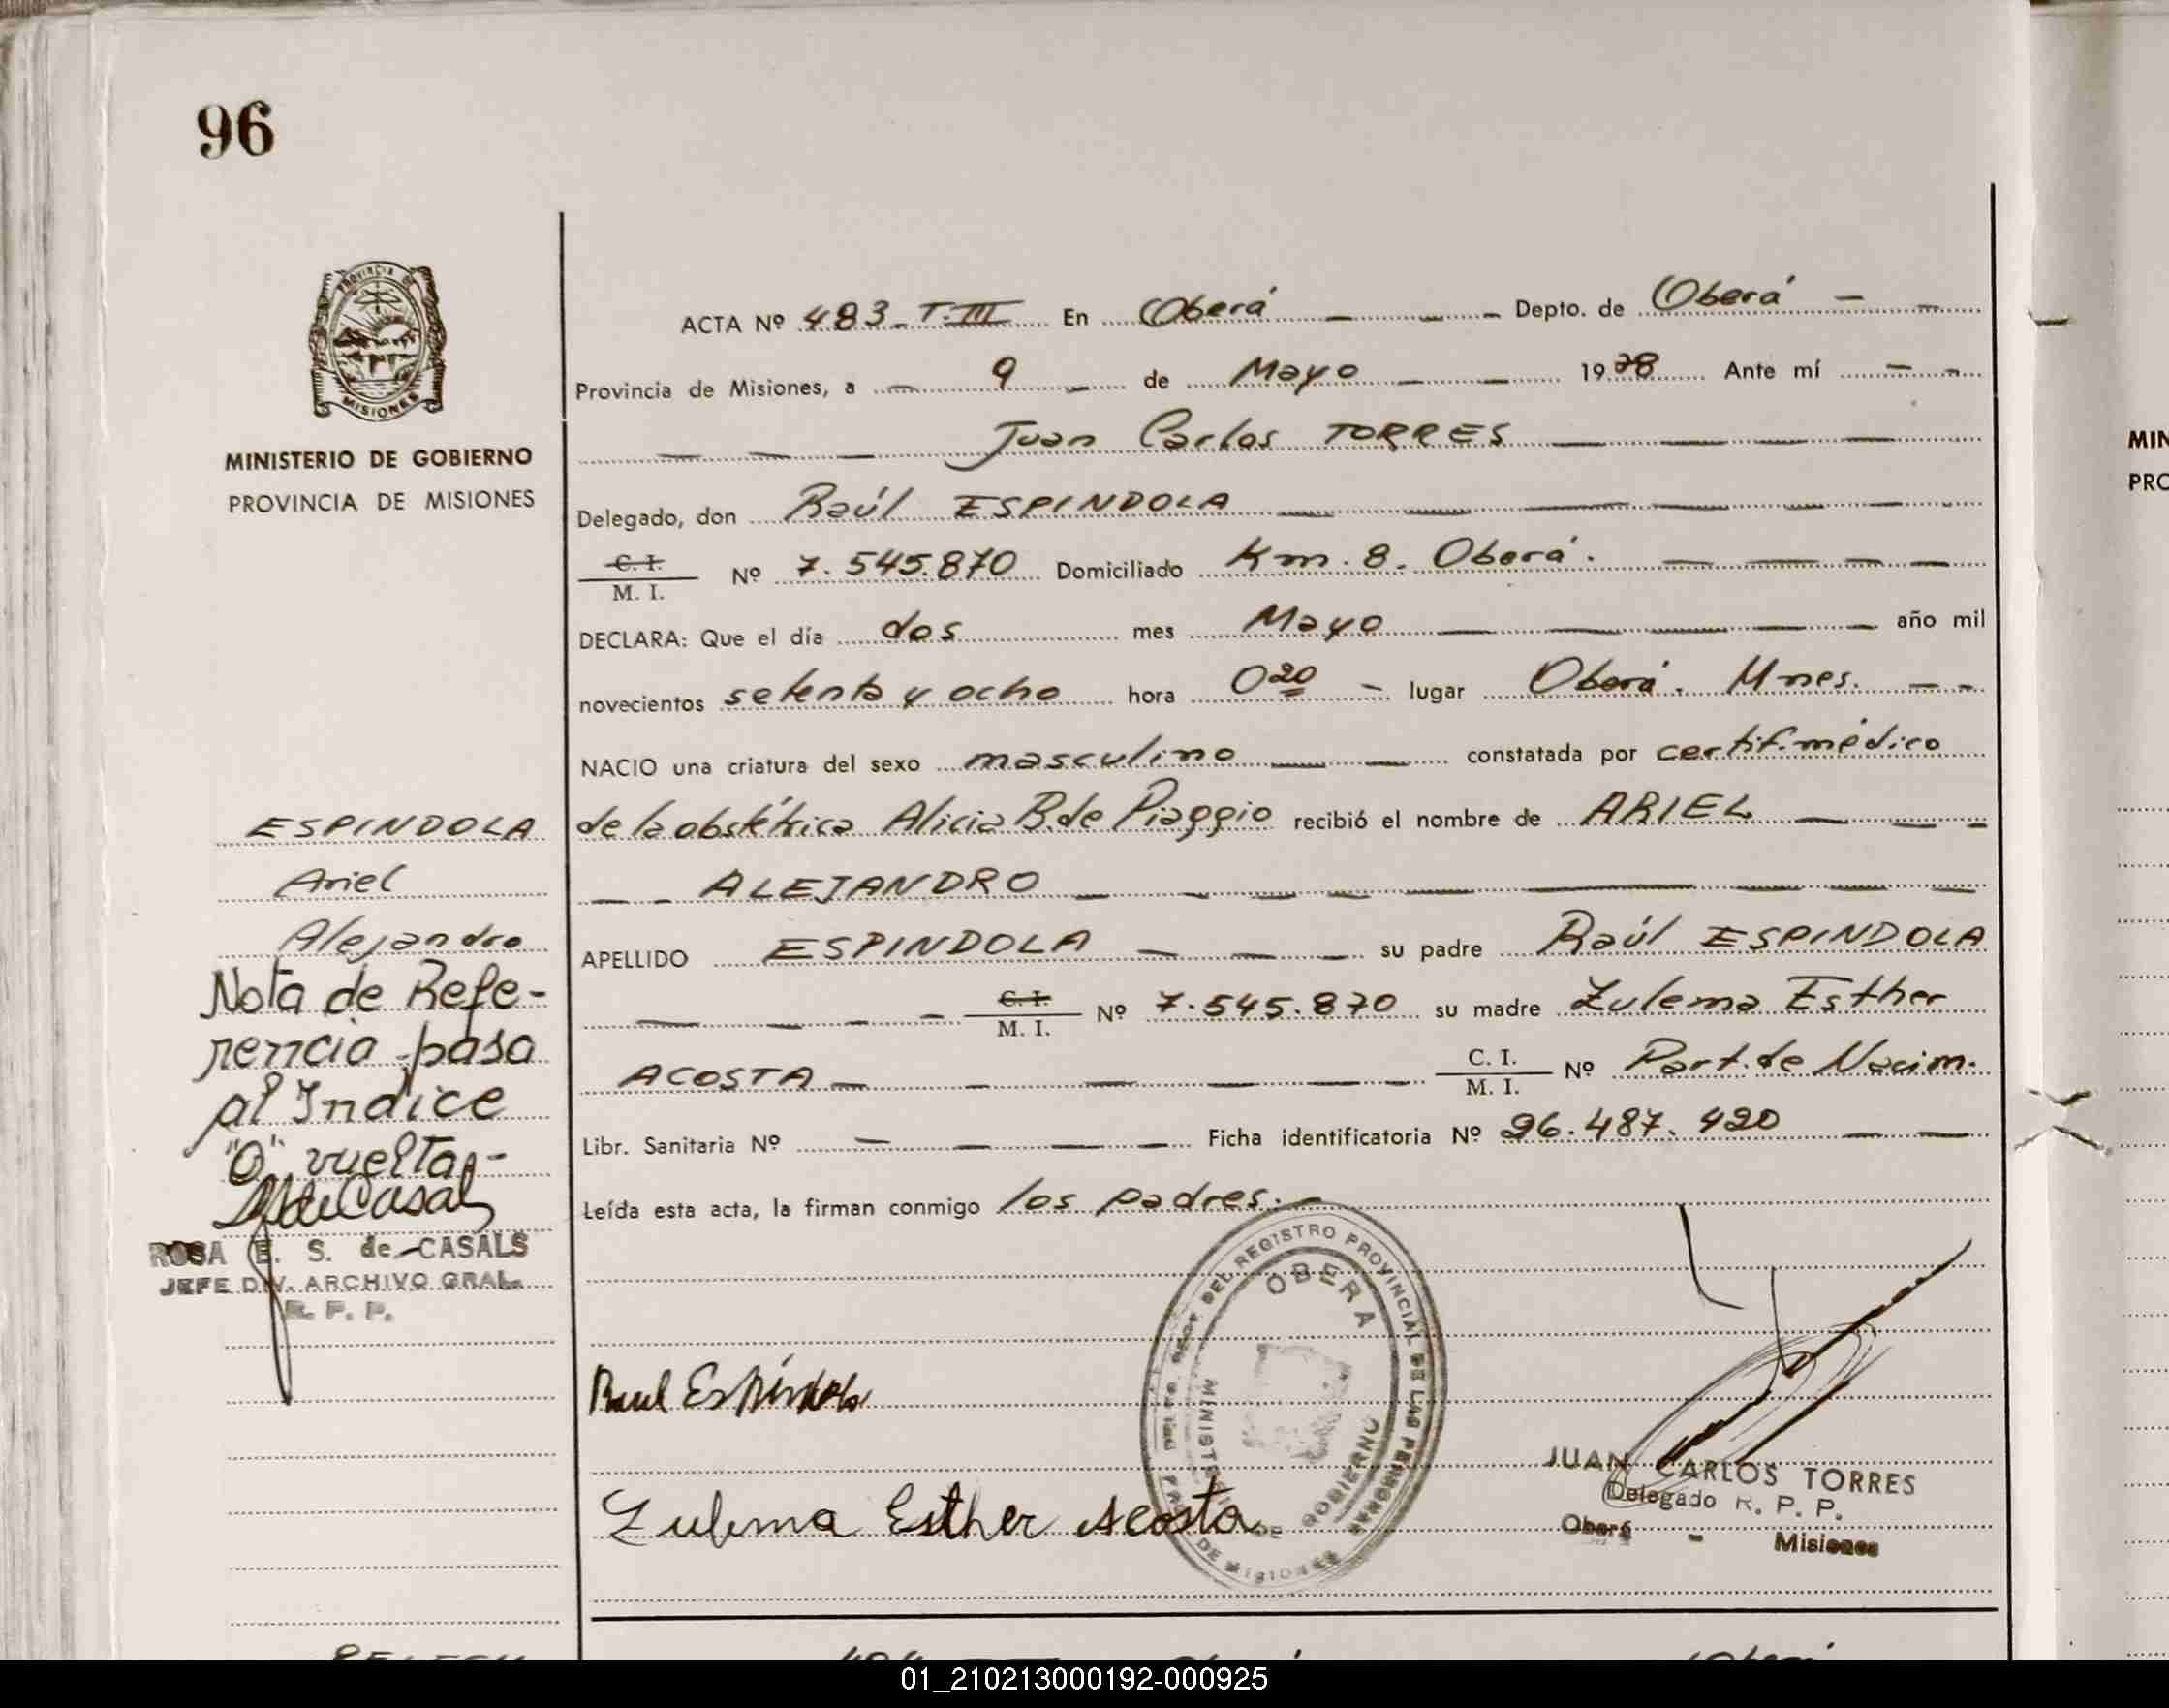 96
PROVINCIA DE
MISIONES
MINISTERIO DE GOBIERNO
PROVINCIA DE MISIONES
ACTA Nº 483 - T. III En Oberá - - Depto. de Oberá - -
Provincia de Misiones, a - 9 - de Mayo - - 1978 Ante mí - -
- - - Juan Carlos TORRES - - -
Delegado, don Raúl ESPINDOLA - - - - - -
C. I.
M. I. Nº 7.545.870 Domiciliado Km. 8. Oberá. - - - -
DECLARA: Que el día dos mes Mayo - - - - - año mil
novecientos setenta y ocho hora 0 20 - lugar Oberá. Mnes. - -
NACIO una criatura del sexo masculino - - constatada por certif. médico
de la obstétrica Alicia B. de Piaggio recibió el nombre de ARIEL - - -
- - ALEJANDRO - - - - - - - -
APELLIDO ESPINDOLA - - - su padre Raúl ESPINDOLA
- - - - - C. I.
M. I. Nº 7.545.870 su madre Zulema Esther
ACOSTA - - - - - - C. I.
M. I. Nº Part. de Nacim.
Libr. Sanitaria Nº - - - - Ficha identificatoria Nº 26.487.420 - -
Leída esta acta, la firman conmigo los padres. -
ESPINDOLA
Ariel
Alejandro
Nota de Refe-
rencia pasa
al Indice
"O" vuelta -
ROSA E. S. de CASALS
JEFE DIV. ARCHIVO GRAL.
R. P. P.
Raul Espíndola
Zulema Esther Acosta
DEL REGISTRO PROVINCIAL DE LAS PERSONAS
OBERA
MINISTERIO DE GOBIERNO
DE MISIONES
JUAN CARLOS TORRES
Delegado R. P. P.
Oberá - Misiones
MIN
PRO
01_210213000192-000925